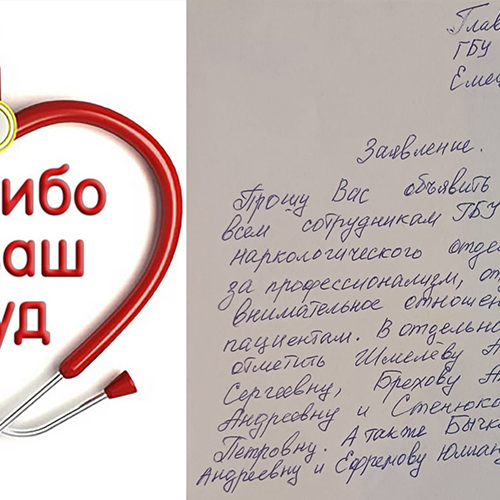 ибо
аш
уд
Глав
ГБУ
Емец
Заявление.
Прошу Вас объявить
всем сотрудникам ГБУ
наркологического отдел
за профессионализм, от
внимательное отношен
пациентам. В отдельно
отметить Шмелёву А
Сергеевну, Брехову А
Андреевну и Стенюко
Петровну. А также Бычк
Андреевну и Ефремову Юлиан